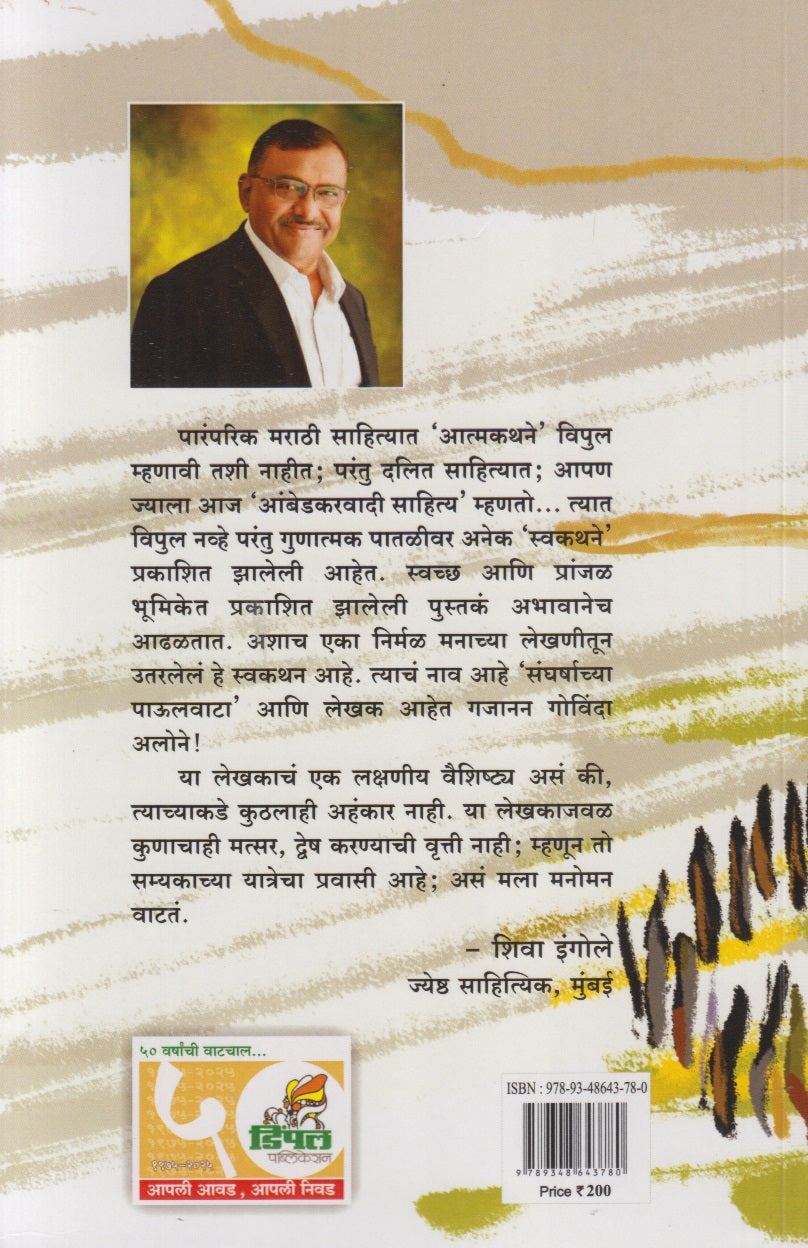 पारंपरिक मराठी साहित्यात ‘आत्मकथने’ विपुल
म्हणावी तशी नाहीत; परंतु दलित साहित्यात; आपण
ज्याला आज ‘आंबेडकरवादी साहित्य’ म्हणतो... त्यात
विपुल नव्हे परंतु गुणात्मक पातळीवर अनेक ‘स्वकथने’
प्रकाशित झालेली आहेत. स्वच्छ आणि प्रांजळ
भूमिकेत प्रकाशित झालेली पुस्तकं अभावानेच
आढळतात. अशाच एका निर्मळ मनाच्या लेखणीतून
उतरलेलं हे स्वकथन आहे. त्याचं नाव आहे ‘संघर्षाच्या
पाऊलवाटा’ आणि लेखक आहेत गजानन गोविंदा
अलोने!
या लेखकाचं एक लक्षणीय वैशिष्ट्य असं की,
त्याच्याकडे कुठलाही अहंकार नाही. या लेखकाजवळ
कुणाचाही मत्सर, द्वेष करण्याची वृत्ती नाही; म्हणून तो
सम्यकाच्या यात्रेचा प्रवासी आहे; असं मला मनोमन
वाटतं.
– शिवा इंगोले
ज्येष्ठ साहित्यिक, मुंबई
५० वर्षांची वाटचाल...
५०
डिंपल
पब्लिकेशन
१९७५-२०२५
आपली आवड, आपली निवड
ISBN : 978-93-48643-78-0
9 789348 643780
Price ₹ 200